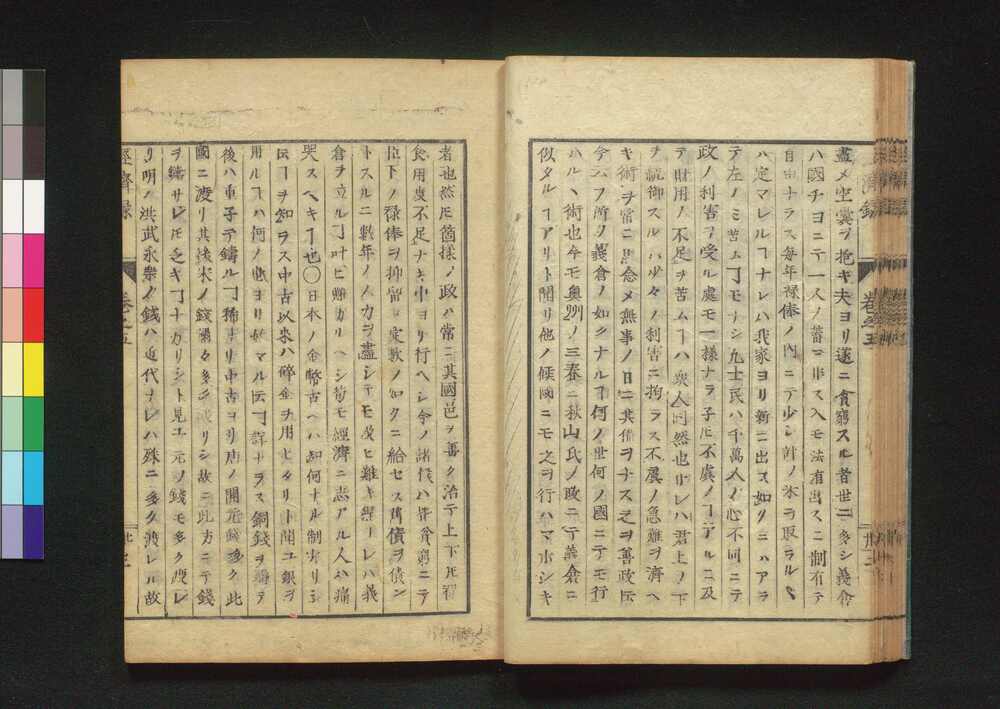 盡メ空嚢ヲ抱キ夫ヨリ遂ニ貪窮スル者世ニ多シ義倉
ハ國チヨニテ一人ノ蓄ニ非ス入モ法有出スニ制有テ
自由ナラス毎年禄俸ノ内ニテ少シ許ノ米ヲ取ラルヽ
ハ定マレルヿナレハ我家ヨリ新ニ出ス如クニハアラ
テ左ノミ苦ムヿモナシ凡士民ハ千萬人ノ心不同ニテ
政ノ利害ヲ受ル處モ一様ナラ子𪜈不虞ノヿアルニ及
テ財用ノ不足ヲ苦ムヿハ衆人同然也サレハ君上ノ下
ヲ統御スルハ少々ノ利害ニ拘ラス不虞ノ急難ヲ濟ヘ
キ術ヲ常ニ思念メ無事ノ日ニ其備ヲナス之ヲ善政
今云フ所ノ義倉ノ如クナルヿ何ノ世何ノ國ニテモ行
ハルヽ術也今モ奥州ノ三春ニ秋山氏ノ政ニテ義倉ニ
似タルヿアリト聞リ他ノ候國ニモ之ヲ行ハマホシキ
經濟録
卷之五
者也然𪜈箇様ノ政ハ常ニ其國邑ヲ善ク治テ上下𪜈
食用度不足ナキ中ヨリ行ヘシ今ノ諸侯ハ皆貧窮ニテ
臣下ノ禄俸ヲ抑留シ定數ノ如クニ給セス舊債ヲ償ン
トスルニ數年ノ力ヲ盡シテモ及ヒ難キ程ナレハ義
倉ヲ立ルヿ叶ヒ難カルヘシ苟モ經濟ニ志アル人ハ痛
哭スヘキヿ也〇日本ノ金幣古ヘハ如何ナル制有リシ
ヿヲ知ラス中古以来ハ碎金ヲ用ヒタリト聞ユ銀ヲ
用ルヿハ何ノ世ヨリ始マルヿ詳ナラス銅錢ヲ鑄テ
後ハ重子テ鑄ルヿ稀ナリ中古ヨリ唐ノ開元錢多ク此
國ニ渡リ其後宋ノ錢彌々多ク渡リシ故ニ此方ニテ錢
ヲ鑄サレ𪜈乏キヿナカリシト見ユ元ノ錢モ多ク渡レ
リ明ノ洪武永樂ノ錢ハ近代ナレハ殊ニ多ク渡レル故
經濟録
卷之五